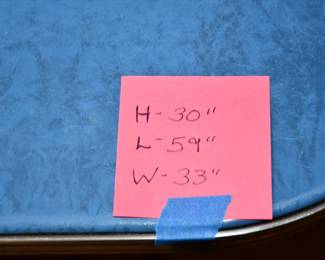 H-30"
L-59"
W-33"